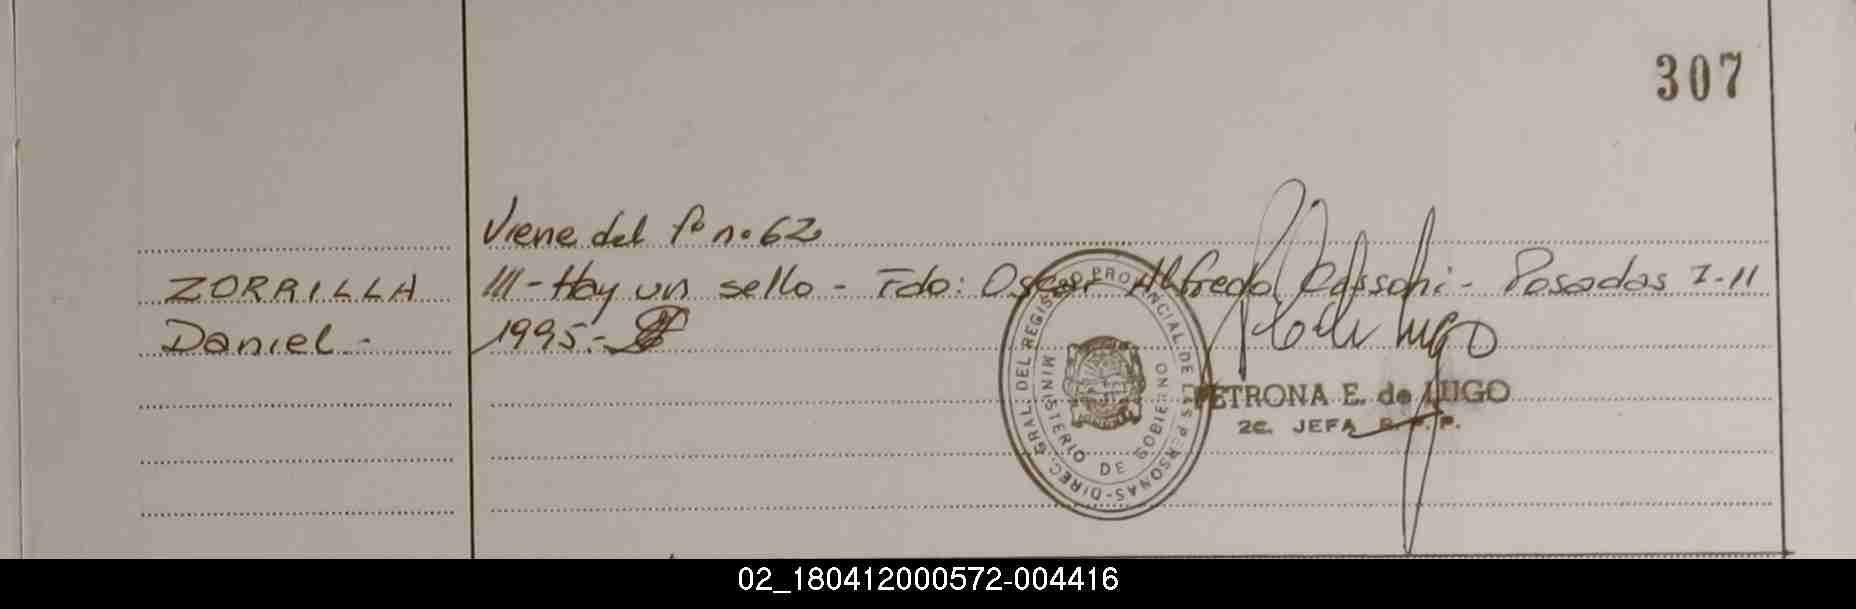 307
Viene del fº nº 62
ZORRILLA
Daniel.-
///- Hay un sello - Fdo: Oscar Alfredo - Posadas 7-11
1995.-
DIREC. GRAL. DEL REGISTRO PROVINCIAL DE LAS PERSONAS
MINISTERIO DE GOBIERNO
PETRONA E. de LUGO
2C. JEFA R.P.P.
02_180412000572-004416